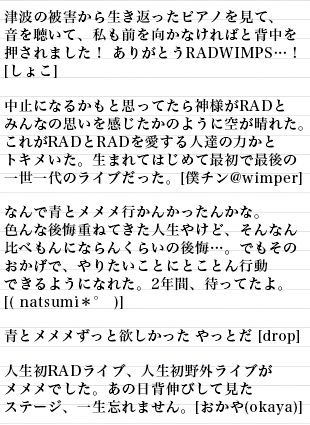 津波の被害から生き返ったピアノを見て、
音を聴いて、私も前を向かなければと背中を
押されました！ ありがとうRADWIMPS…！
[しょこ]
中止になるかもと思ってたら神様がRADと
みんなの思いを感じたかのように空が晴れた。
これがRADとRADを愛する人達の力かと
トキメいた。生まれてはじめて最初で最後の
一世一代のライブだった。[僕チン@wimper]
なんで青とメメメ行かんかったんかな。
色んな後悔重ねてきた人生やけど、そんなん
比べもんにならんくらいの後悔…。でもその
おかげで、やりたいことにとことん行動
できるようになれた。2年間、待ってたよ。
[( natsumi＊゜ )]
青とメメメずっと欲しかった やっとだ [drop]
人生初RADライブ、人生初野外ライブが
メメメでした。あの日背伸びして見た
ステージ、一生忘れません。[おかや(okaya)]